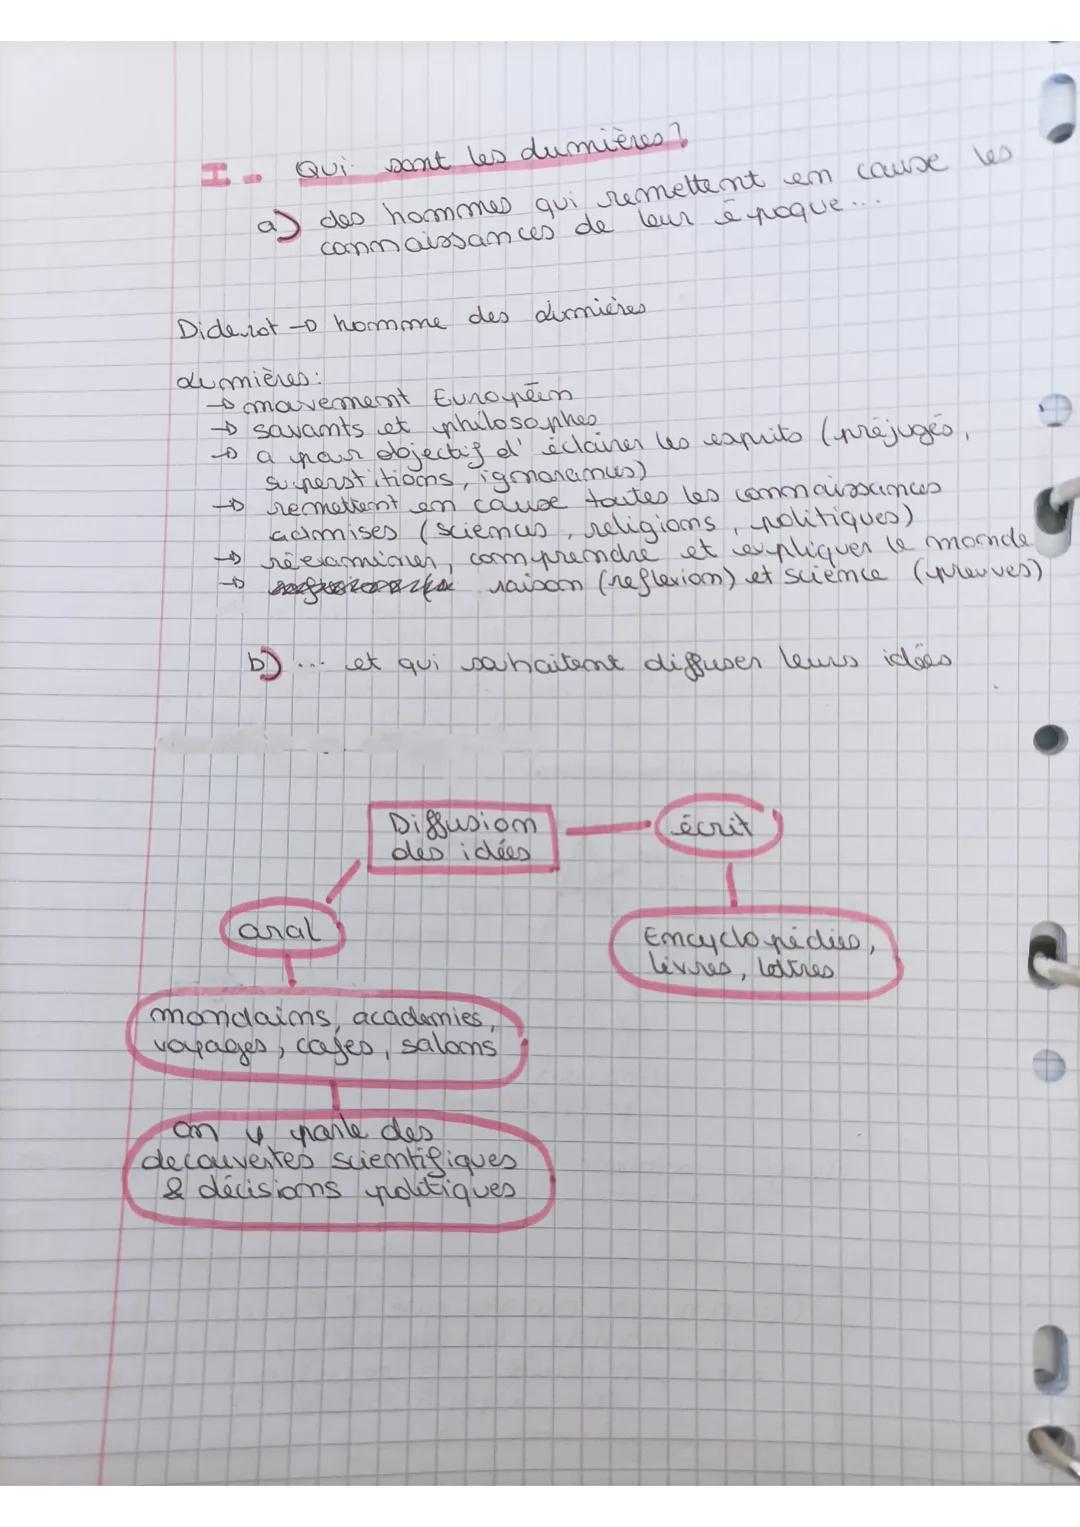 I - Qui sont les Lumières ?
a) des hommes qui remettent en cause les
connaissances de leur époque...
Diderot → homme des Lumières
Lumières :
→ mouvement Européen
→ savants et philosophes
→ a pour objectif d'éclairer les esprits (préjugés,
superstitions, ignorances)
→ remettent en cause toutes les connaissances
admises (sciences, religions, politiques)
→ réexaminer, comprendre et expliquer le monde
→ raison (reflexion) et science (preuves)
b) ... et qui souhaitent diffuser leurs idées
Diffusion
des idées
écrit
oral
Encyclopédies,
livres, lettres
mondains, academies,
voyages, cafes, salons
on y parle des
decouvertes scientifiques
& décisions politiques